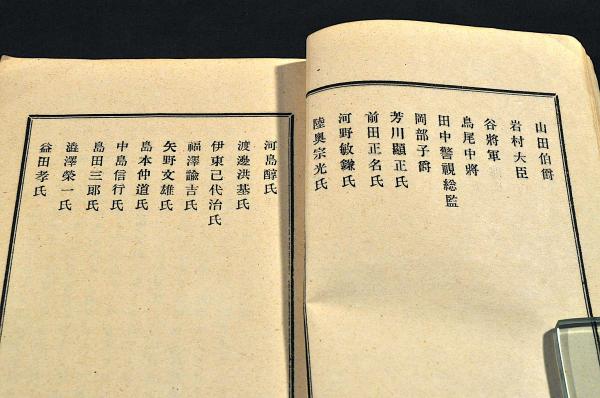 山田伯爵
岩村大臣
谷將軍
鳥尾中將
田中警視総監
岡部子爵
芳川顯正氏
前田正名氏
河野敏鎌氏
陸奥宗光氏
河島醇氏
渡邊洪基氏
伊東己代治氏
福澤諭吉氏
矢野文雄氏
島本仲道氏
中島信行氏
島田三郎氏
澁澤榮一氏
益田孝氏